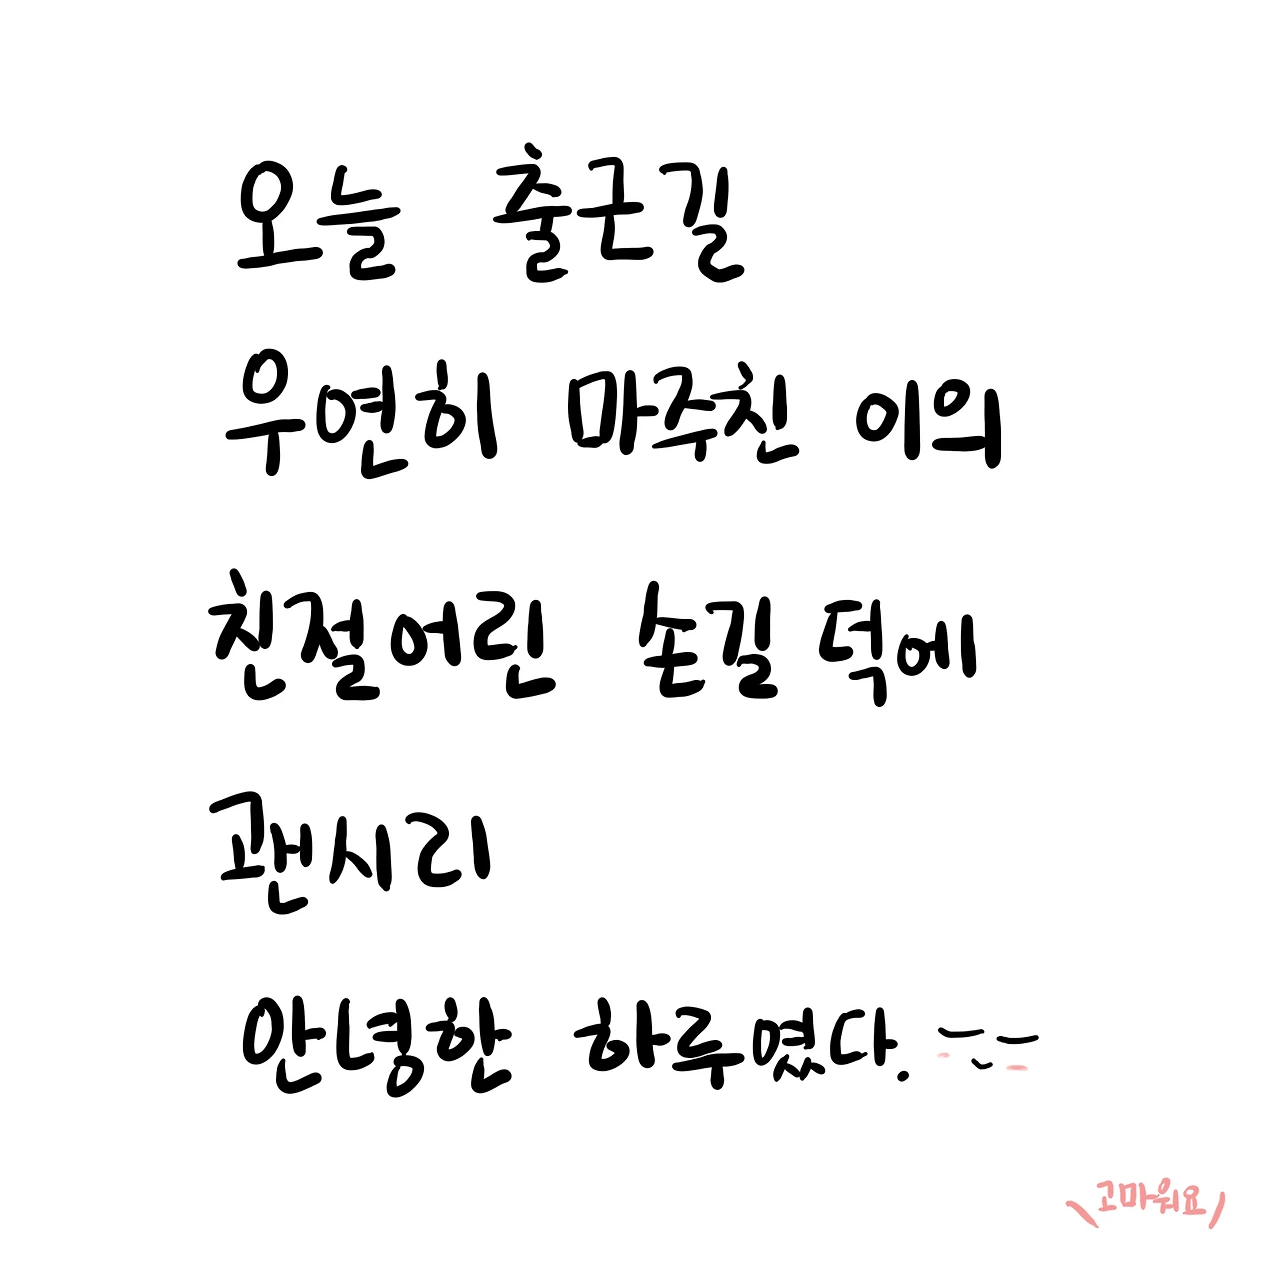 오늘 출근길
우연히 마주친 이의
친절어린 손길 덕에
괜시리
안녕한 하루였다.
\고마워요/